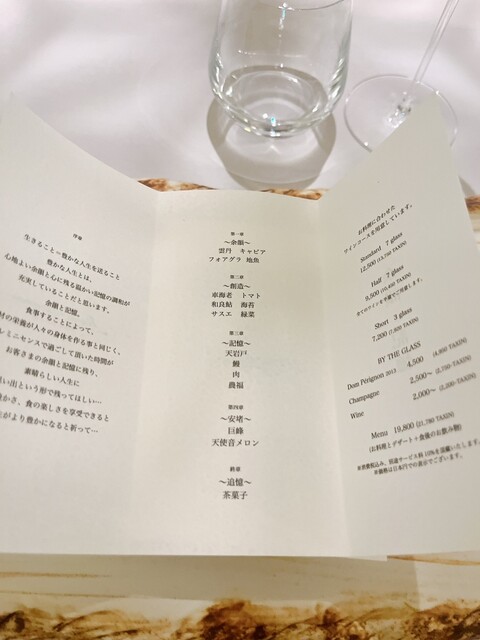 序章
生きること=豊かな人生を送ること
豊かな人生とは、
心地よい余韻と心に残る温かい記憶の調和が
充実していることだと思います。
余韻と記憶。
食事することによって、
材の栄養が人々の身体を作る事と同じく、
レミニセンスで過ごして頂いた時間が
お客さまの余韻と記憶に残り、
素晴らしい人生に
い出という形で残ってほしい…
豊かさ、食の楽しさを享受できると
がより豊かになると祈って…
第一章
〜余韻〜
雲丹 キャビア
フォアグラ 地魚
第二章
〜創造〜
車海老 トマト
和良鮎 海苔
サスエ 緑菜
第三章
〜記憶〜
天岩戸
鰻
肉
農福
第四章
〜安堵〜
巨峰
天使音メロン
終章
〜追憶〜
茶菓子
お料理に合わせた
ワインコースを用意しています。
Standard 7 glass
12,500 (13,750 TAXIN)
Half 7 glass
9,500 (10,450 TAXIN)
全てのワインを半量でご用意します。
Short 3 glass
7,200 (7,920 TAXIN)
BY THE GLASS
Dom Pérignon 2013 4,500 (4,950 TAXIN)
Champagne 2,500〜 (2,750〜 TAXIN)
Wine 2,000〜 (2,200〜 TAXIN)
Menu 19,800 (21,780 TAXIN)
(お料理とデザート+食後のお飲み物)
※消費税込み、別途サービス料10%を頂戴いたします。
※価格は日本円での表示でございます。